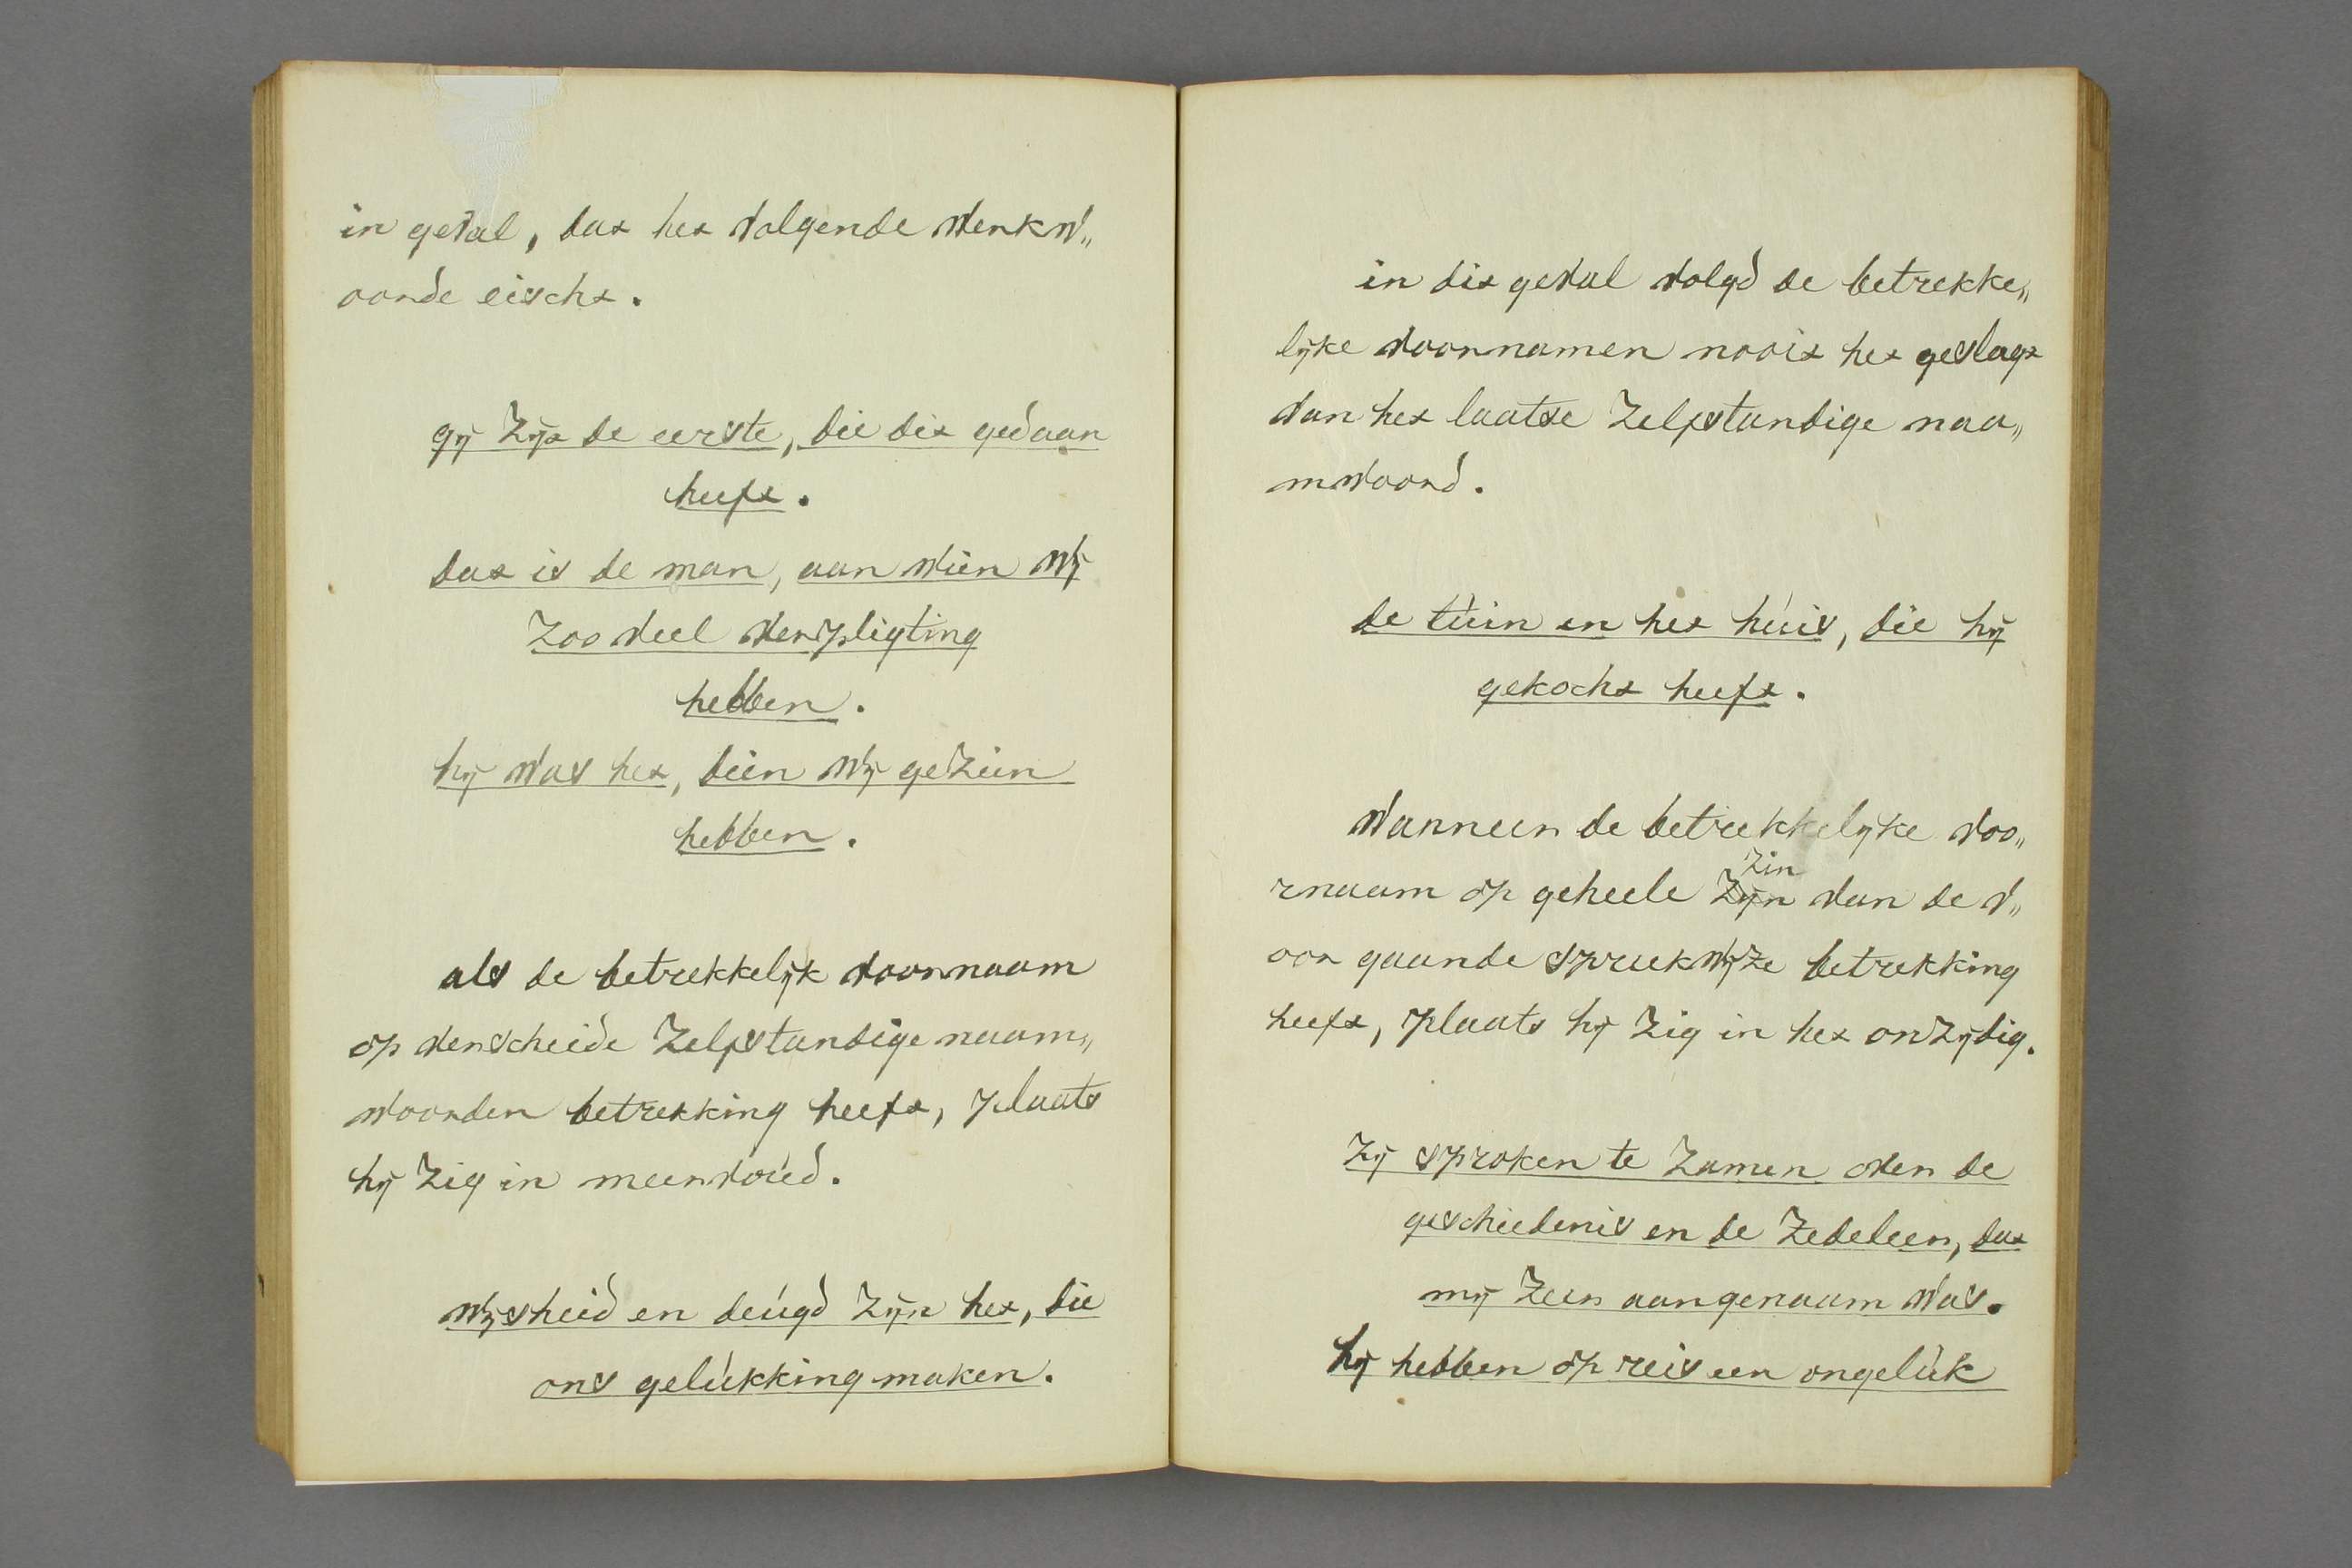 in geval, dat het volgende werkw„
oorde eischt.
gij zijt de eerste, die dit gedaan
heeft.
dat is de man, aan wien wij
zoo veel verpligting
hebben.
hij was het, dien wij gezien
hebben.
als de betrekkelijk voornaam
op verscheide zelfstandige naam„
woorden betrekking heeft, plaats
hij zig in meervoud.
wijsheid en deugd zijn het, die
ons gelukking maken.
in dit geval volgd de betrekke„
lijke voornamen nooit het geslagt
van het laatse zelfstandige naa„
mwoord.
de tuin en het huis, die hij
gekocht heeft.
wanneer de betrekkelijke voo„
rnaam op geheele zijn van de v„
zin
oor gaande spreekwijze betrekking
heeft, plaats hij zig in het onzijdig.
zij sproken te zamen over de
geschiedenis en de zedeleer, dat
mij zeer aangenaam was.
hij hebben op reis een ongeluk